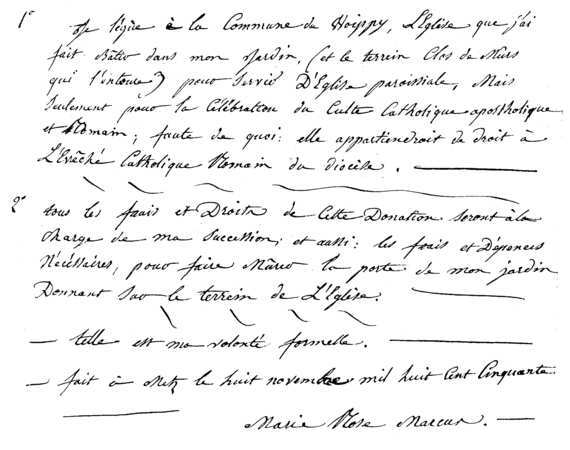 1° Je lègue à la Commune de Woippy, L'Eglise que j'ai
fait Bâtir dans mon Jardin, (et le terrein Clos de Mûrs
qui l'entoure) pour Servir D'Eglise paroissiale, Mais
Seulement pour la Célébration du Culte Catholique apostholique
et Romain; faute de quoi: elle appartiendroit de droit à
L'Evêché Catholique Romain du diocèse.
2° tous les frais et Droits de Cette Donation seront à la
Charge de ma Succession; et aussi: les frais et Dépences
Nécéssaires, pour faire Mûrer la porte de mon jardin
Donnant Sur le terrein de L'Eglise.
— telle est ma volonté formelle.
— fait à Metz le huit novembre mil huit Cent Cinquante
Marie Rose Marcus.